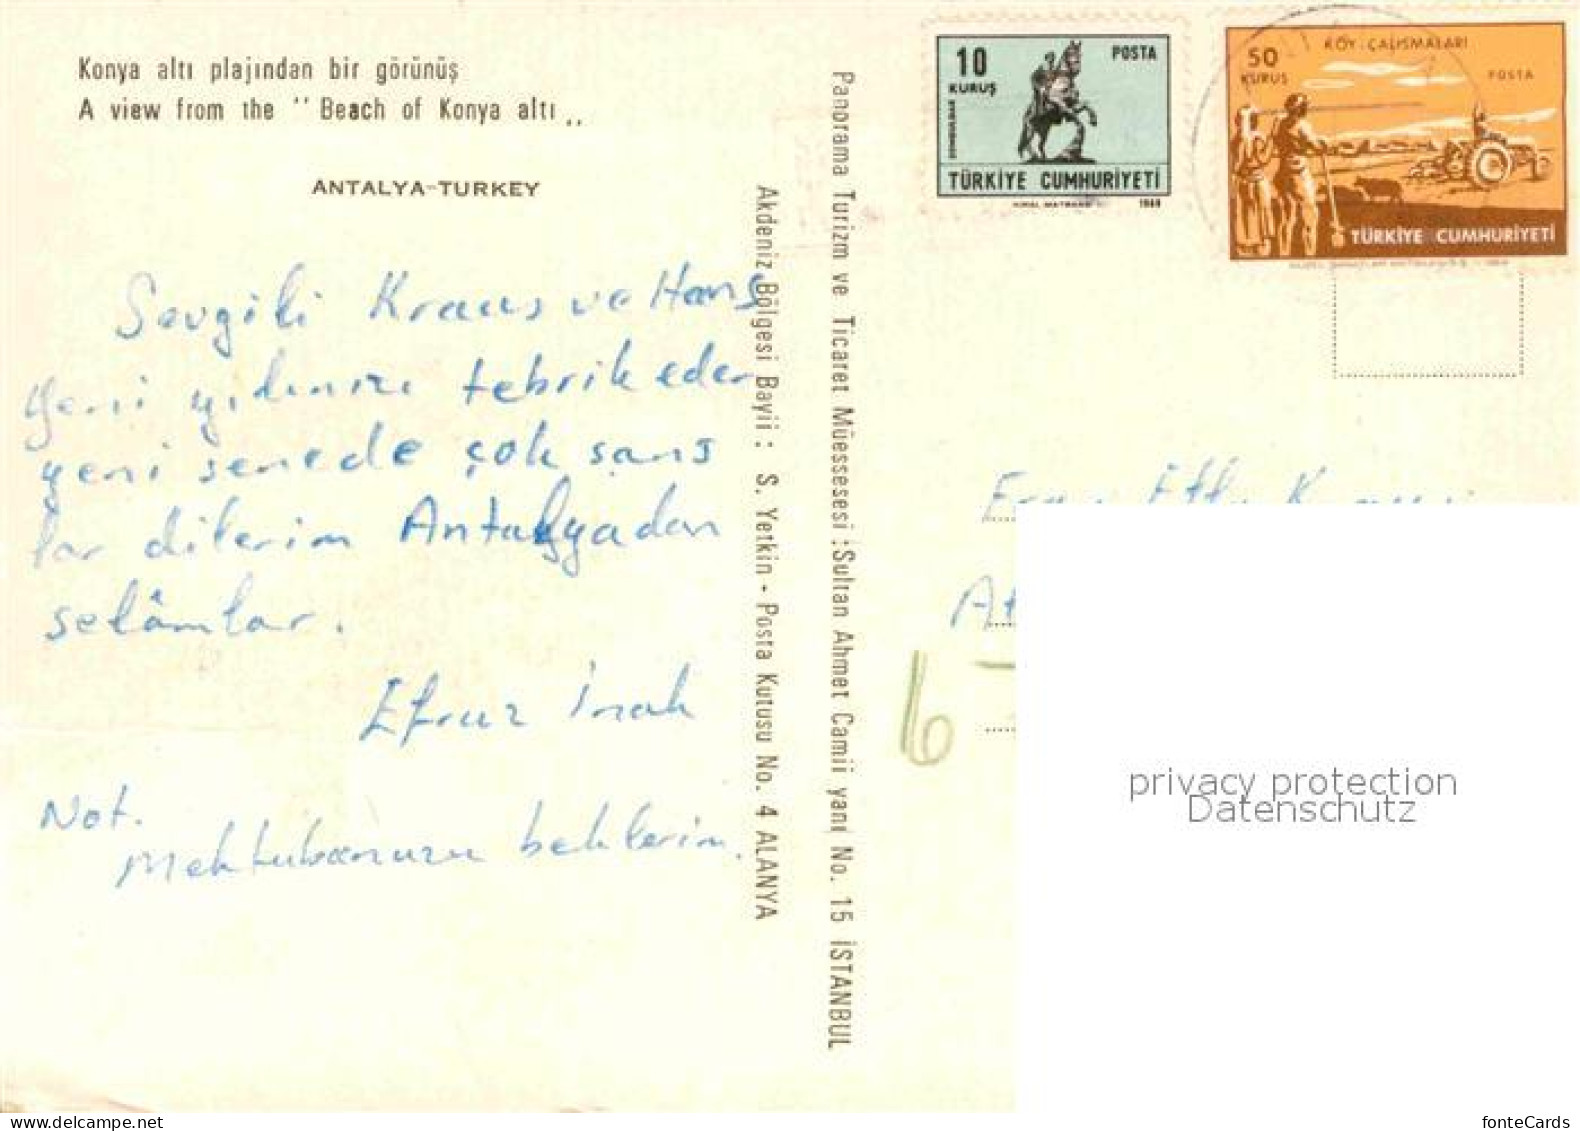 Konya altı plajından bir görünüş
A view from the '' Beach of Konya altı ,,
ANTALYA-TURKEY
Sevgili Kraus ve Hans
Yeni yılınızı tebrik eder
yeni senede çok şans
lar dilerim Antalyadan
selâmlar.
Efruz İnak
Not.
Mektubunuzu beklerim.
Akdeniz Bölgesi Bayii : S. Yetkin - Posta Kutusu No. 4 ALANYA
Panorama Turizm ve Ticaret Müessesesi : Sultan Ahmet Camii yanı No. 15 İSTANBUL
10 POSTA
KURUŞ
ZONGULDAK
TÜRKİYE CUMHURİYETİ
KÖY ÇALIŞMALARI
50
KURUŞ
POSTA
TÜRKİYE CUMHURİYETİ
6
privacy protection
Datenschutz
fonteCards